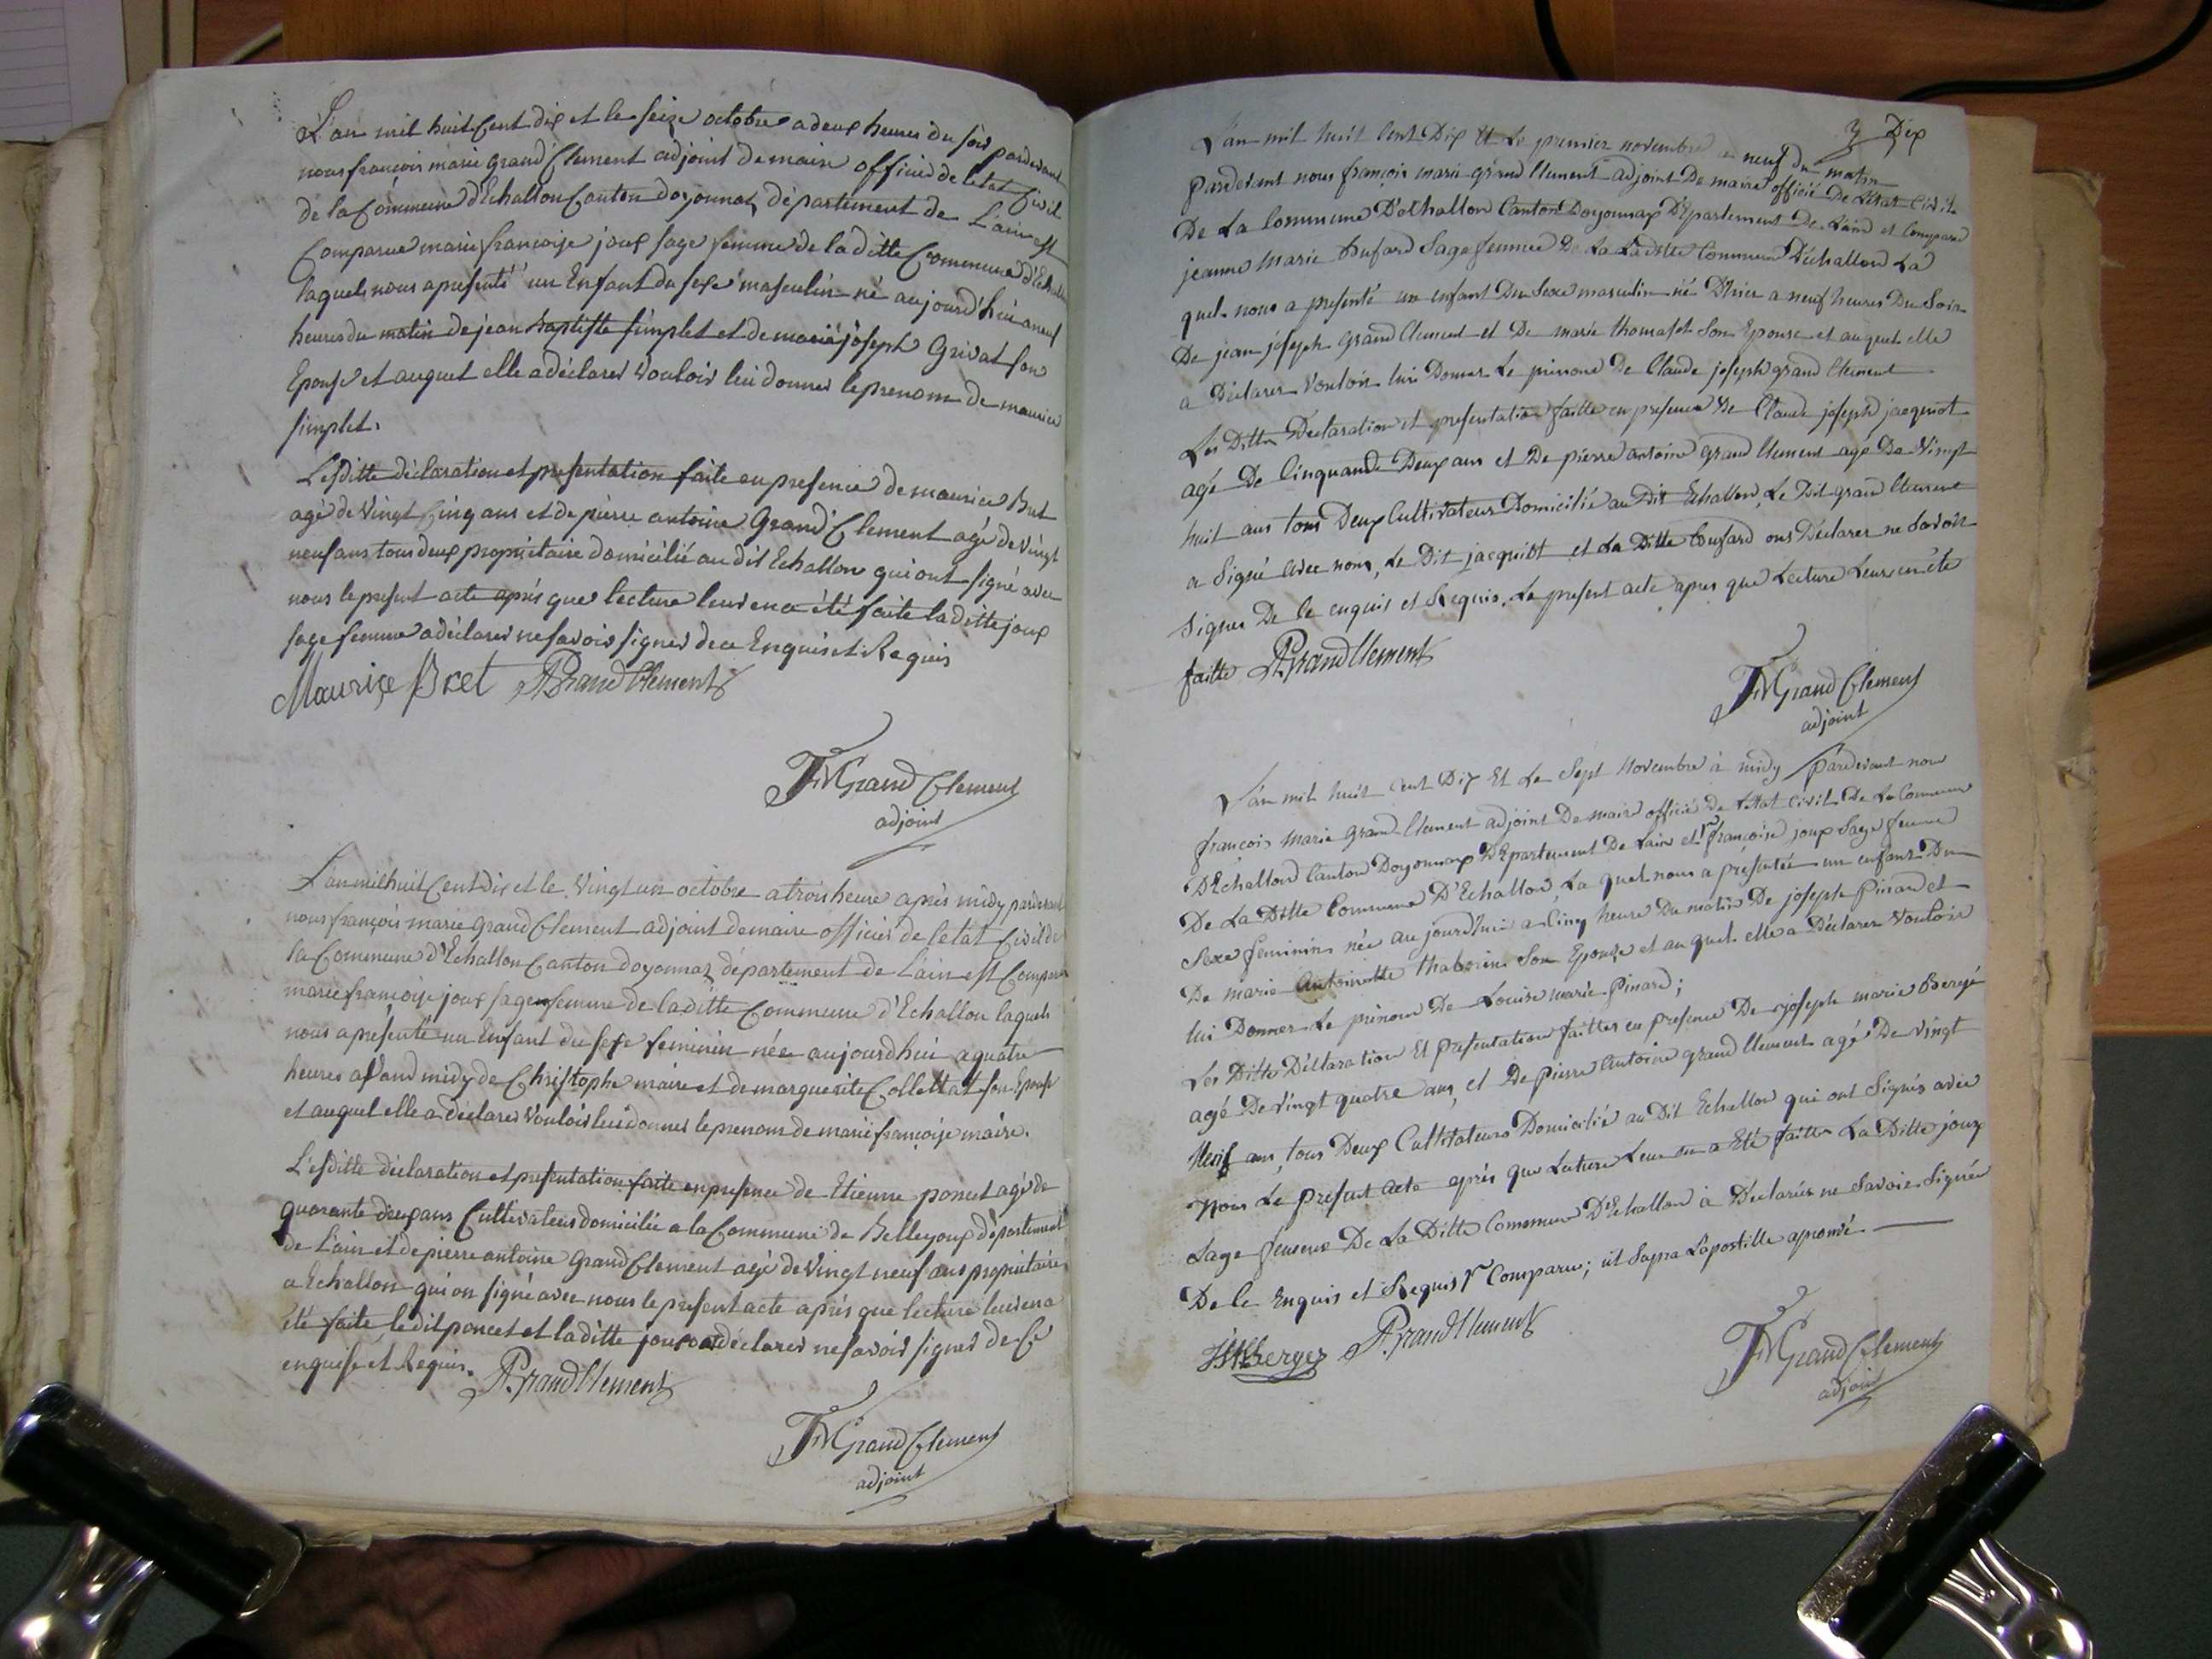 L'an mil huit Cent dix et le seize octobre a deux heures du soir pardevant
nous françois marie grand Clement adjoint de maire officier de letat Civil
de la Commune d'Echallon Canton doyonnax département de L'ain est
Comparue marie françoise joux sage femme de la ditte Commune d'Echallon
laquel nous a présenté un Enfant du sexe masculin né aujourd'hui a neuf
heures du matin de jean baptiste simplet et de marie joseph Grivat son
Epouse et auquel elle a déclarer vouloir lui donner le prenom de maurice
simplet.
Lesditte déclaration et presentation faite en presence de maurice Bret
agé de vingt Cinq ans et de pierre antoine Grand Clement agé de vingt
neuf ans tous deux propriétaire domicilié au dit Echallon qui ont signé avec
nous le present acte après que lecture leur en a été faite la ditte joux
sage femme a déclarer ne savoir signer de ce Enquis et Requis
Maurice Bret PA Grand Clement
FM Grand Clement
adjoint
L'an mil huit Cent dix et le vingt un octobre a trois heure après midy pardevant
nous françois marie grand Clement adjoint de maire officier de letat Civil de
la Commune d'Echallon Canton doyonnax département de L'ain est Comparue
marie françoise joux sage femme de la ditte Commune d'Echallon laquel
nous a présenté un Enfant du sexe feminin née aujourdhui a quatre
heures avand midy de Christophe maire et de marguerite Collettat son Epouse
et auquel elle a déclarer vouloir lui donner le prenom de marie françoise maire.
Lesditte déclaration et presentation faite en presence de Etienne poncet agé de
quarante deux ans Cultivateur domicilié a la Commune de Belleydoux département
de L'ain et de pierre antoine Grand Clement agé de vingt neuf ans propriétaire
a Echallon qui on signé avec nous le present acte après que lecture leur en a
été faite, le dit poncet et la ditte joux a déclarer ne savoir signer de Ce
enquise et Requis. PA Grand Clement
FM Grand Clement
adjoint
Dix
L'an mil huit Cent Dix Et Le premier novembre a neuf du matin
pardevant nous françois marie grand Clement adjoint De maire officié De L'état Civil
De La Commune D'echallon Canton Doyonnax Département De L'ain et Comparu
jeanne Marie Dufard Sage femme De La Laditte Commune D'échallon La
quel nous a presenté un enfant Du Sexe masculin né D'hier a neuf heures Du Soir
De jean joseph grand Clement et De marie thomasset Son Epouse et auquel elle
a Déclarer Vouloir lui Donner Le prenom De Claude joseph grand Clement
Les Ditte Declaration et presentation faitte en presence De Claude joseph jacquiot
agé De Cinquande Deux ans et De pierre antoine grand Clement agé De Vingt
huit ans tous Deux Cultivateurs Domicilié au Dit Echallon, Le Dit grand Clement
a Signé avec nous, Le Dit jacquiot et La Ditte Dufard ons Déclarer ne Savoir
Signer De Ce enquis et Requis. Le present acte apres que Lecture Leur en ete
faitte PA Grand Clement
FM Grand Clement
adjoint
L'an mil huit Cent Dix Et Le Sept Novembre à midy Pardevant nous
françois marie grand Clement adjoint De maire officié De L'etat Civil De La Commune
D'Echallon Canton Doyonnax Département De Lain et françoise joux Sage femme
De La Ditte Commune D'Echallon La quel nous a présentée un enfant Du
Sexe feminin née au jourd'hui a Cinq heure Du matin De joseph Pinard et
De marie antoinette thaborin Son Epouse et au quel elle a Déclarer Vouloir
lui Donner Le prénom De Louise marie Pinard;
Les Ditte Déclaration Et presentation faittes en presence De joseph marie Bergé
agé De vingt quatre ans, et De Pierre Antoine grand Clement agé De Vingt
Neuf ans, tous Deux Cultivateurs Domicilié au Dit Echallon qui ont Signés avec
Nous Le present acte après que Lecture Leur en a Eté faitte La Ditte joux
Sage femme De La Ditte Commune D'Echallon à Déclarér ne Savoir Signée
De Ce Enquis et Requis Comparu; ut Supra L'apostille aprouvé
JM Bergez PA Grand Clement
FM Grand Clement
adjoint